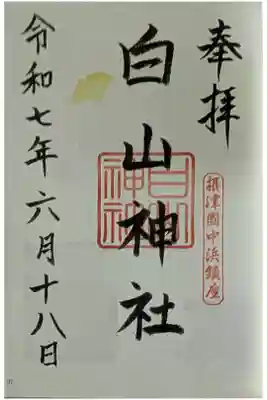 奉拝
摂津國中浜鎮座
白山神社
白山神社
令和七年六月十八日